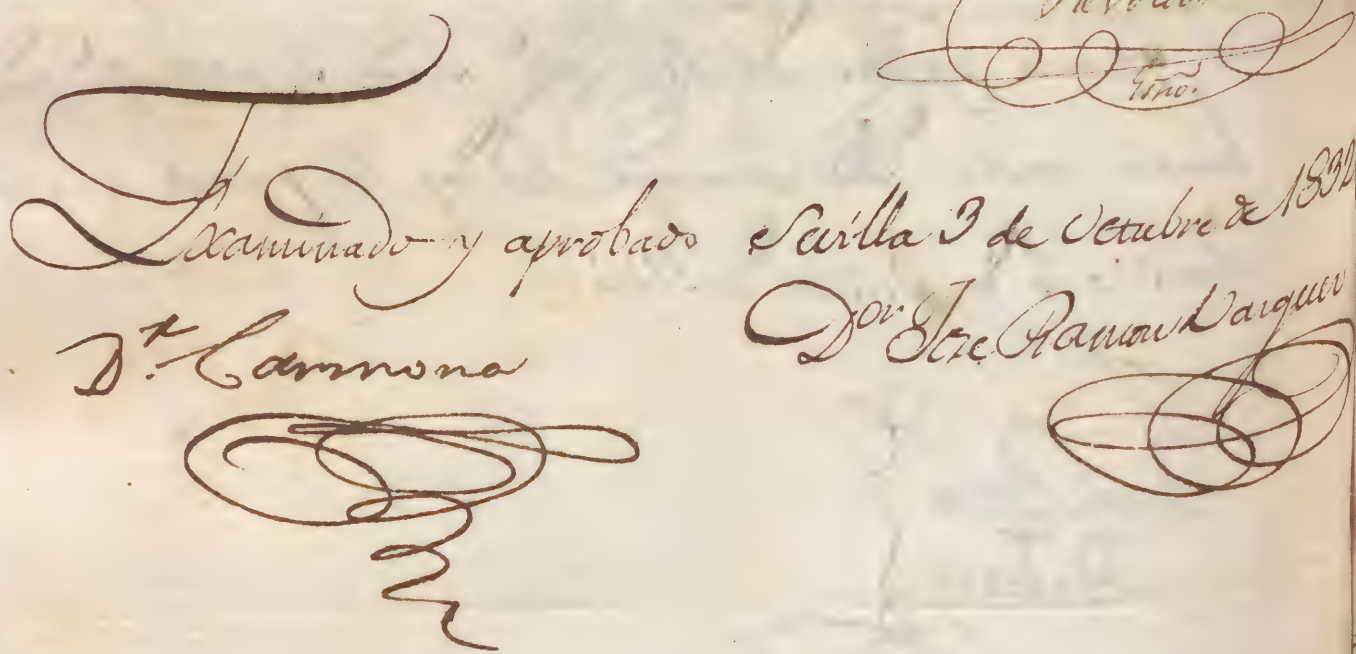 Examinado y aprobado Sevilla 3 de Octubre de 1832
D.r Carmona
D.or Jose Ramon Varguez